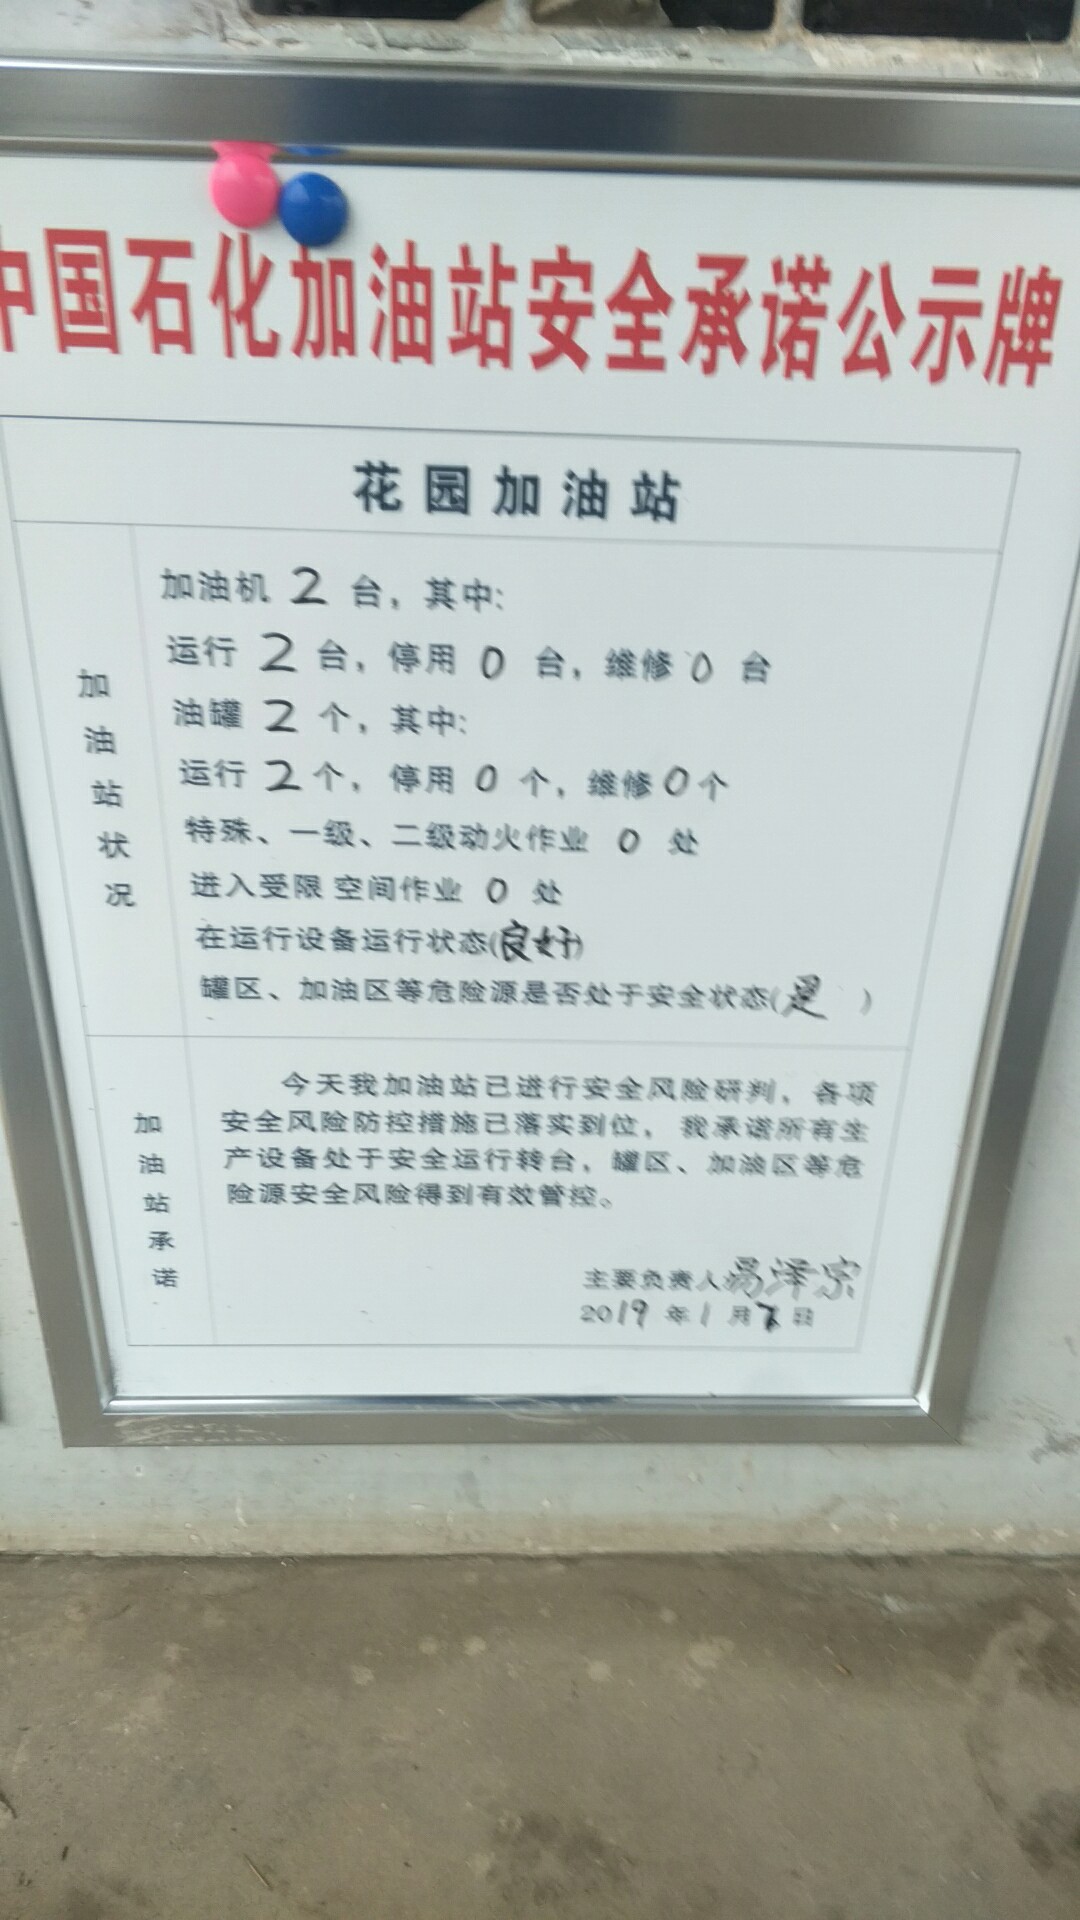 中国石化加油站安全承诺公示牌
花园加油站
加油站状况
加油机 2 台，其中:
运行 2 台，停用 0 台，维修 0 台
油罐 2 个，其中:
运行 2 个，停用 0 个，维修 0 个
特殊、一级、二级动火作业 0 处
进入受限空间作业 0 处
在运行设备运行状态(良好)
罐区、加油区等危险源是否处于安全状态(是 )
加油站承诺
今天我加油站已进行安全风险研判，各项
安全风险防控措施已落实到位，我承诺所有生
产设备处于安全运行转台，罐区、加油区等危
险源安全风险得到有效管控。
主要负责人易泽宗
2019 年 1 月 日